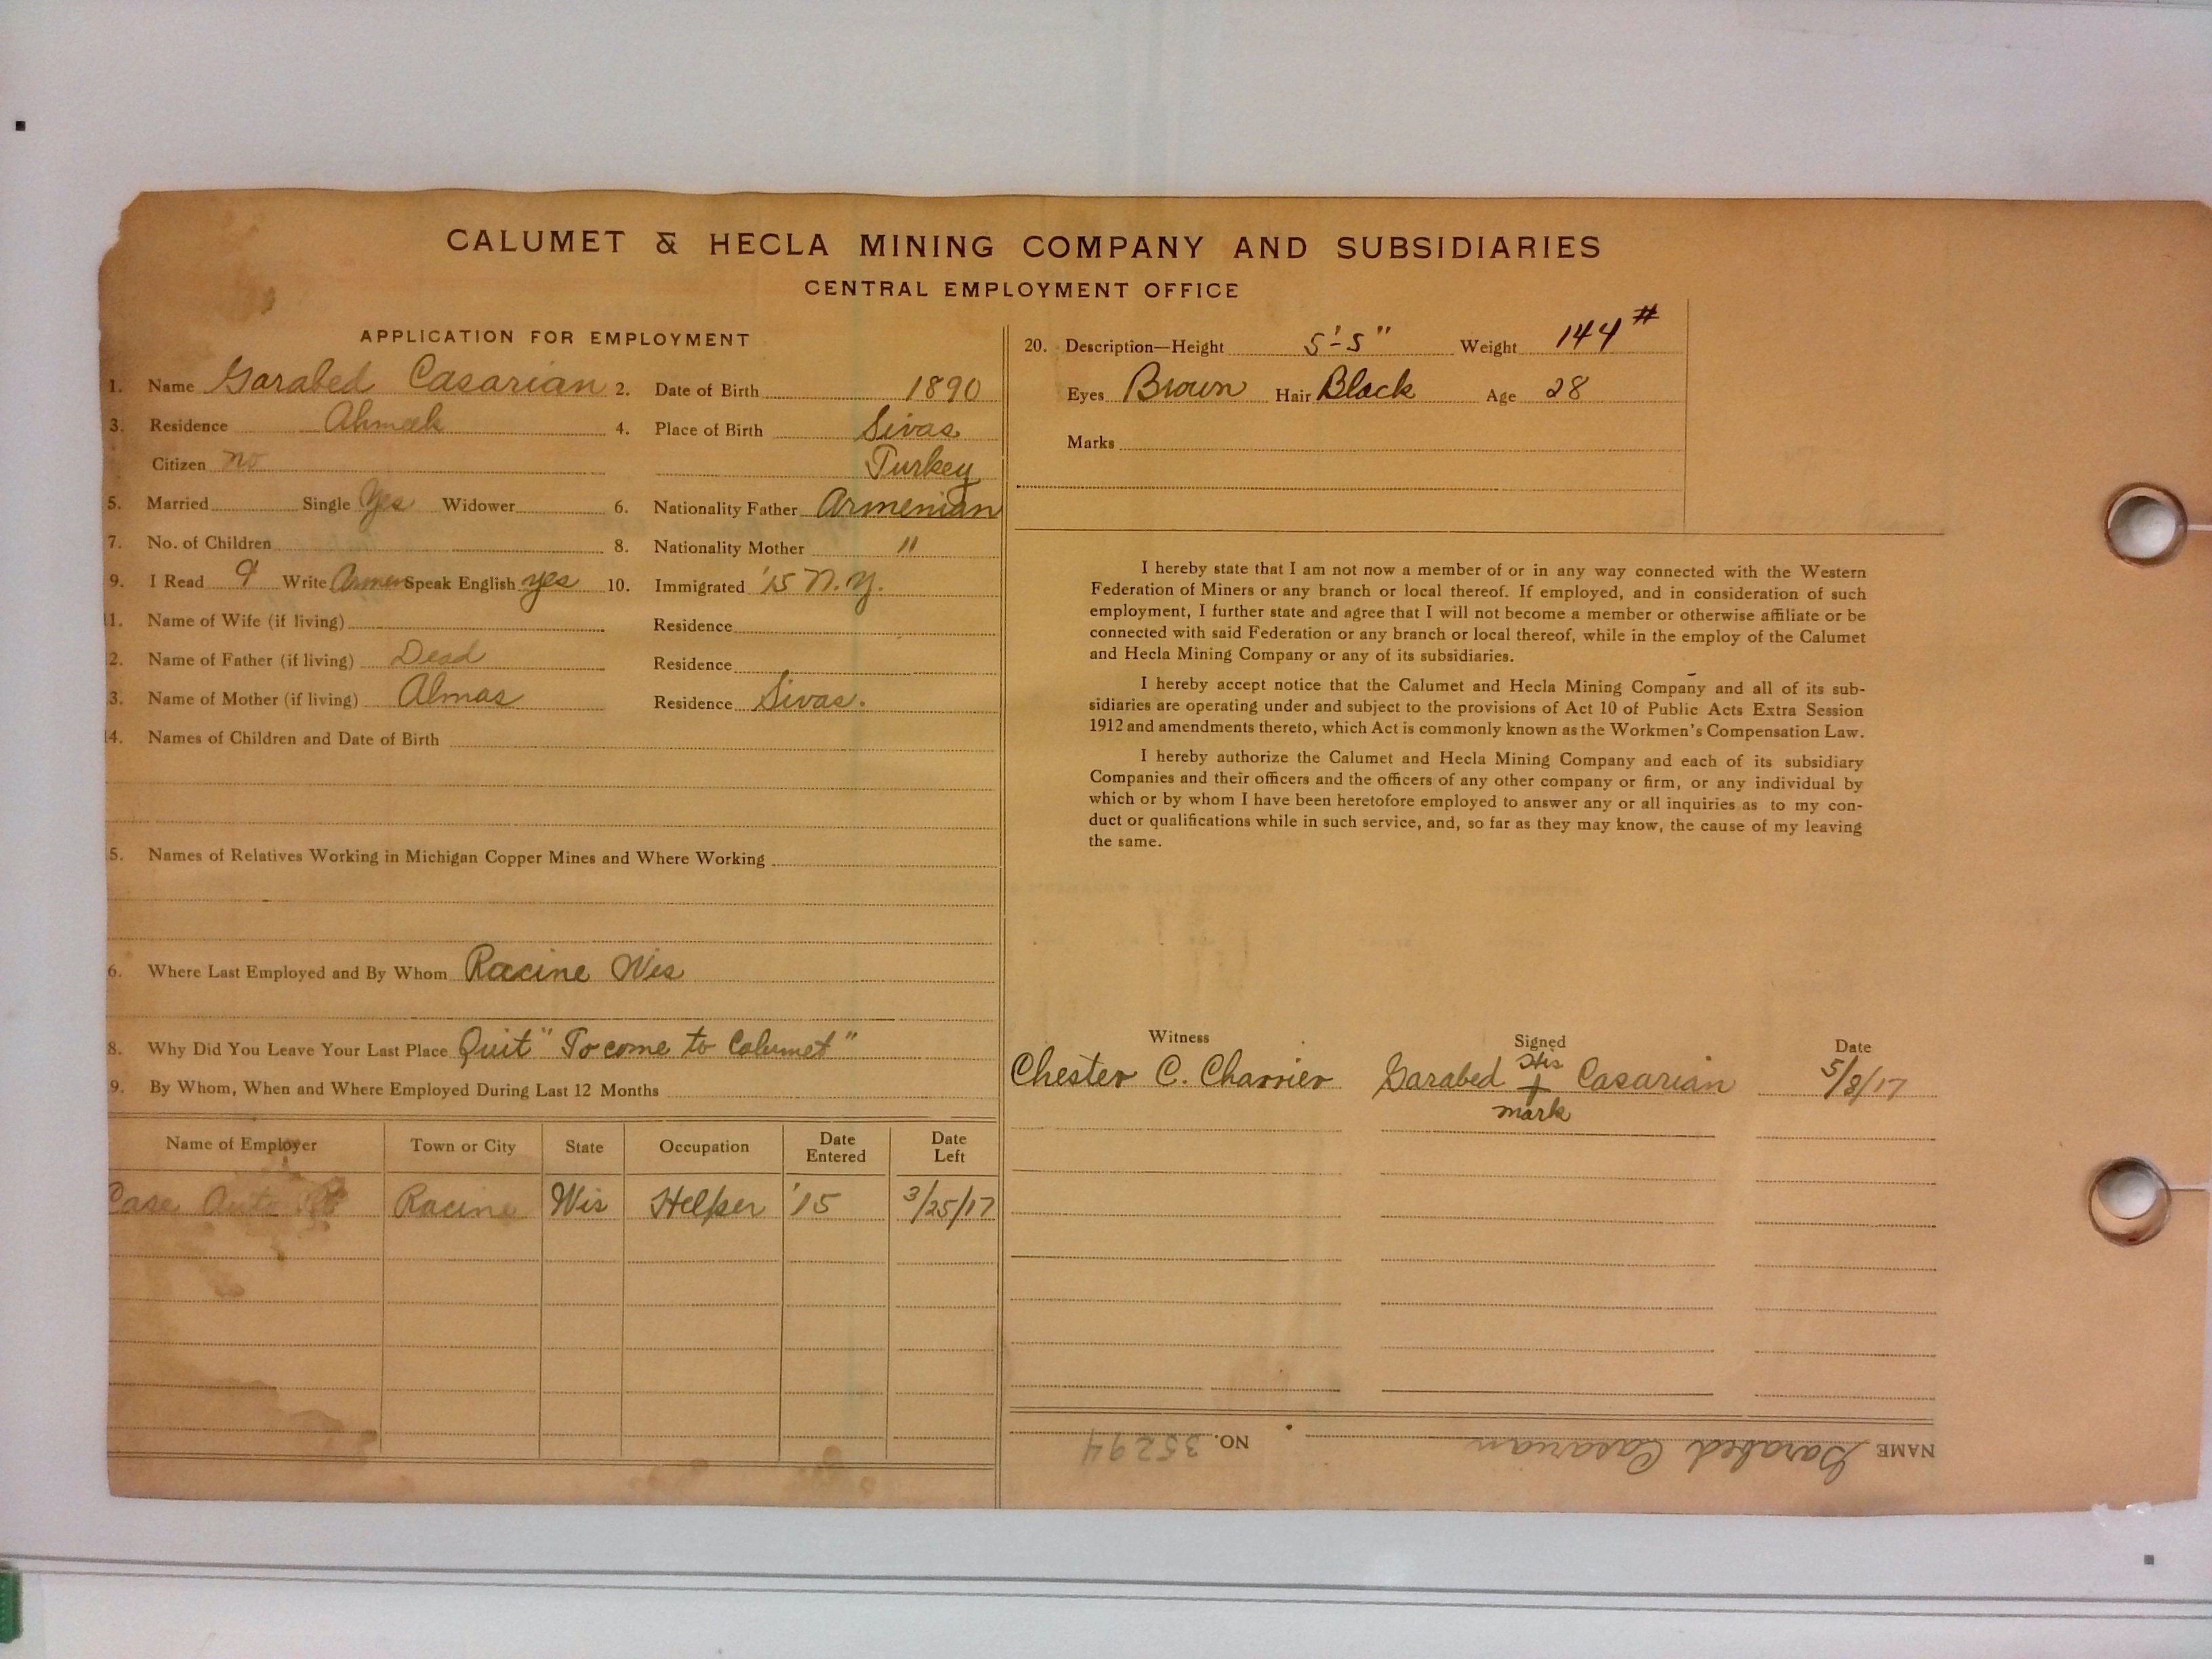 CALUMET & HECLA MINING COMPANY AND SUBSIDIARIES
CENTRAL EMPLOYMENT OFFICE
APPLICATION FOR EMPLOYMENT
1. Name Garabed Casarian 2. Date of Birth 1890
3. Residence Ahmeek 4. Place of Birth Sivas
Citizen no Turkey
5. Married Single Yes Widower 6. Nationality Father Armenian
7. No. of Children 8. Nationality Mother "
9. I Read & Write Armen Speak English yes 10. Immigrated '15 N.Y.
11. Name of Wife (if living) Residence
2. Name of Father (if living) Dead Residence
3. Name of Mother (if living) Almas Residence Sivas.
14. Names of Children and Date of Birth
5. Names of Relatives Working in Michigan Copper Mines and Where Working
6. Where Last Employed and By Whom Racine Wis
8. Why Did You Leave Your Last Place Quit "To come to Calumet"
9. By Whom, When and Where Employed During Last 12 Months
Name of Employer Town or City State Occupation Date Entered Date Left
Case Auto Racine Wis Helper '15 3/25/17
20. Description—Height 5'-5" Weight 144#
Eyes Brown Hair Black Age 28
Marks
I hereby state that I am not now a member of or in any way connected with the Western
Federation of Miners or any branch or local thereof. If employed, and in consideration of such
employment, I further state and agree that I will not become a member or otherwise affiliate or be
connected with said Federation or any branch or local thereof, while in the employ of the Calumet
and Hecla Mining Company or any of its subsidiaries.
I hereby accept notice that the Calumet and Hecla Mining Company and all of its sub-
sidiaries are operating under and subject to the provisions of Act 10 of Public Acts Extra Session
1912 and amendments thereto, which Act is commonly known as the Workmen's Compensation Law.
I hereby authorize the Calumet and Hecla Mining Company and each of its subsidiary
Companies and their officers and the officers of any other company or firm, or any individual by
which or by whom I have been heretofore employed to answer any or all inquiries as to my con-
duct or qualifications while in such service, and, so far as they may know, the cause of my leaving
the same.
Witness Signed Date
Chester C. Charrier Garabed His + mark Casarian 5/8/17
NAME Garabed Casarian NO. 35294